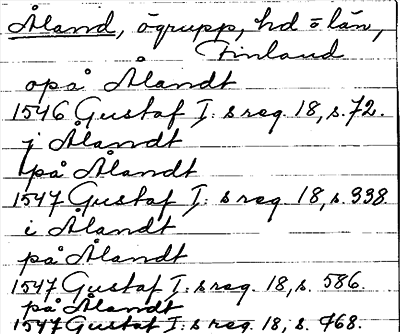 Åland, ögrupp, hd o län,
Finland
opå Ålandt
1546 Gustaf I:s reg. 18, s. 72.
j Ålandt
på Ålandt
1547 Gustaf I:s reg. 18, s. 338
i Ålandt
på Ålandt
1547 Gustaf I:s reg. 18, s. 586.
på Ålandt
1547 Gustaf I:s reg. 18, s. 768.